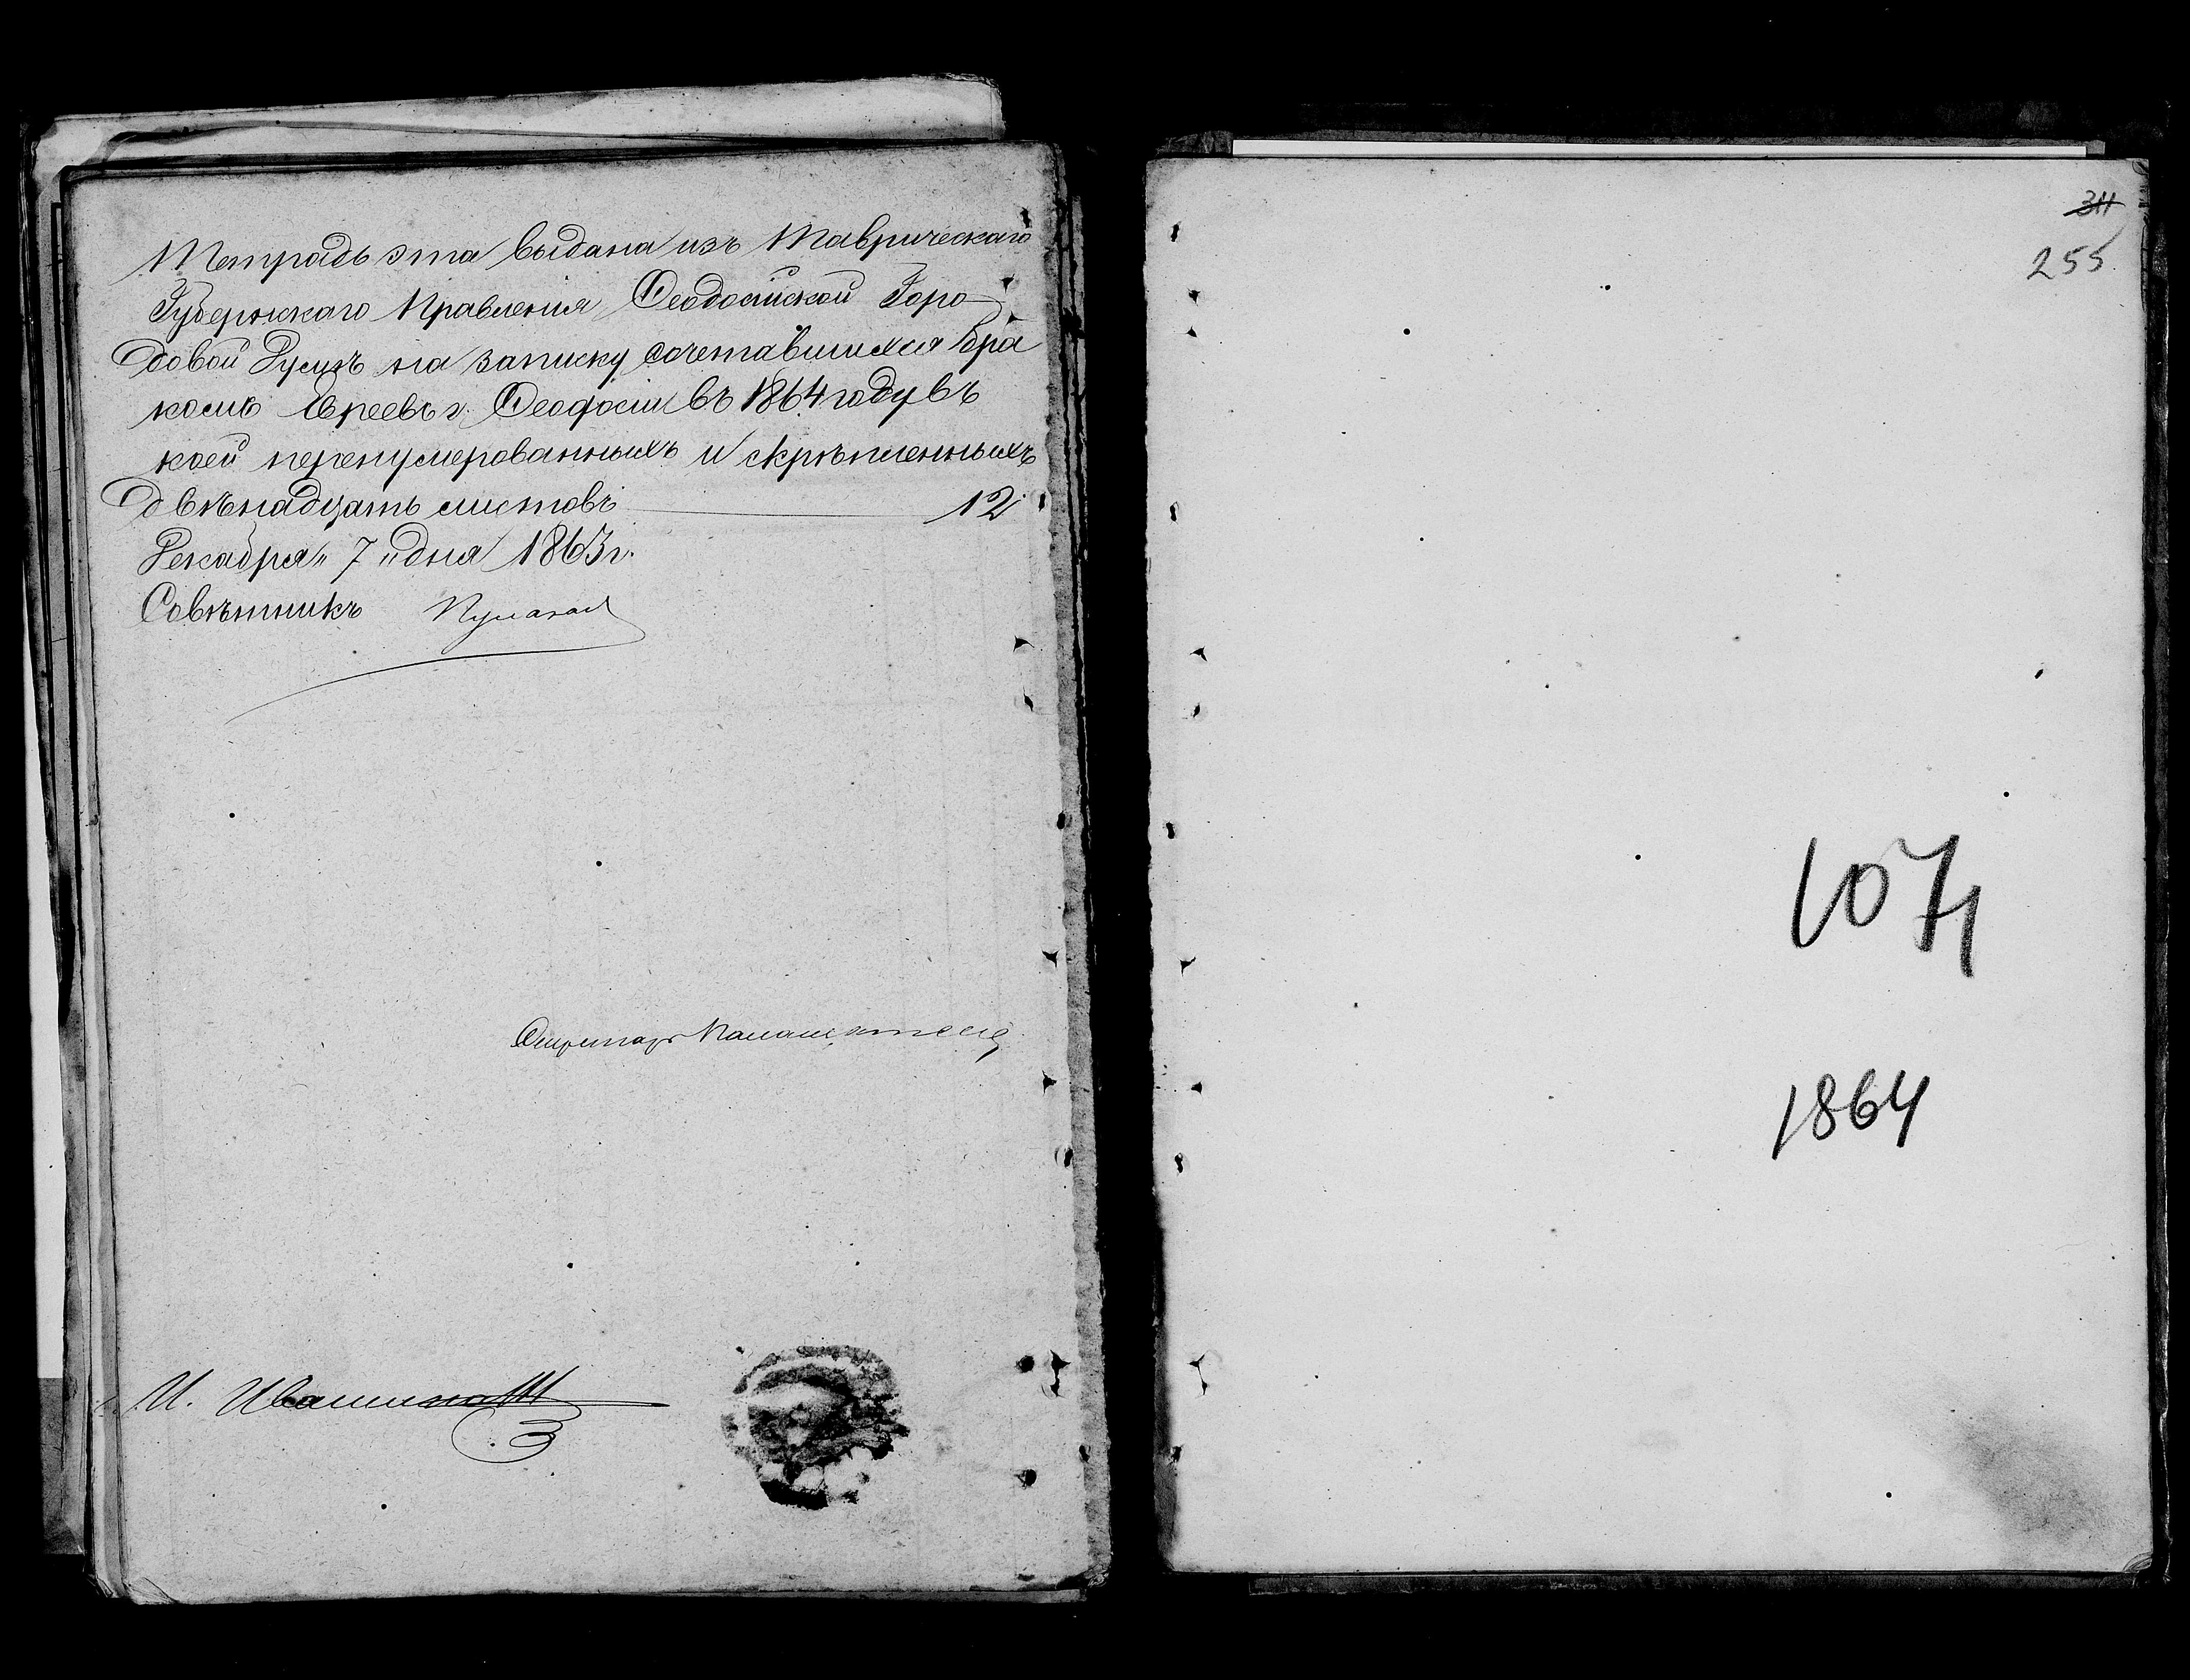 Тетрадь эта выдана изъ Таврическаго
Губернскаго Правленія Ѳеодосійской Горо
довой Думѣ на записку сочетавшихся бра
комъ Евреевъ г. Ѳеодосіи въ 1864 году въ
коей перенумерованныхъ и скрѣпленныхъ
двѣнадцать листовъ 12
Декабря "7" дня 1863 г.
Совѣтникъ
Секретарь
И.
311
255
107
1864